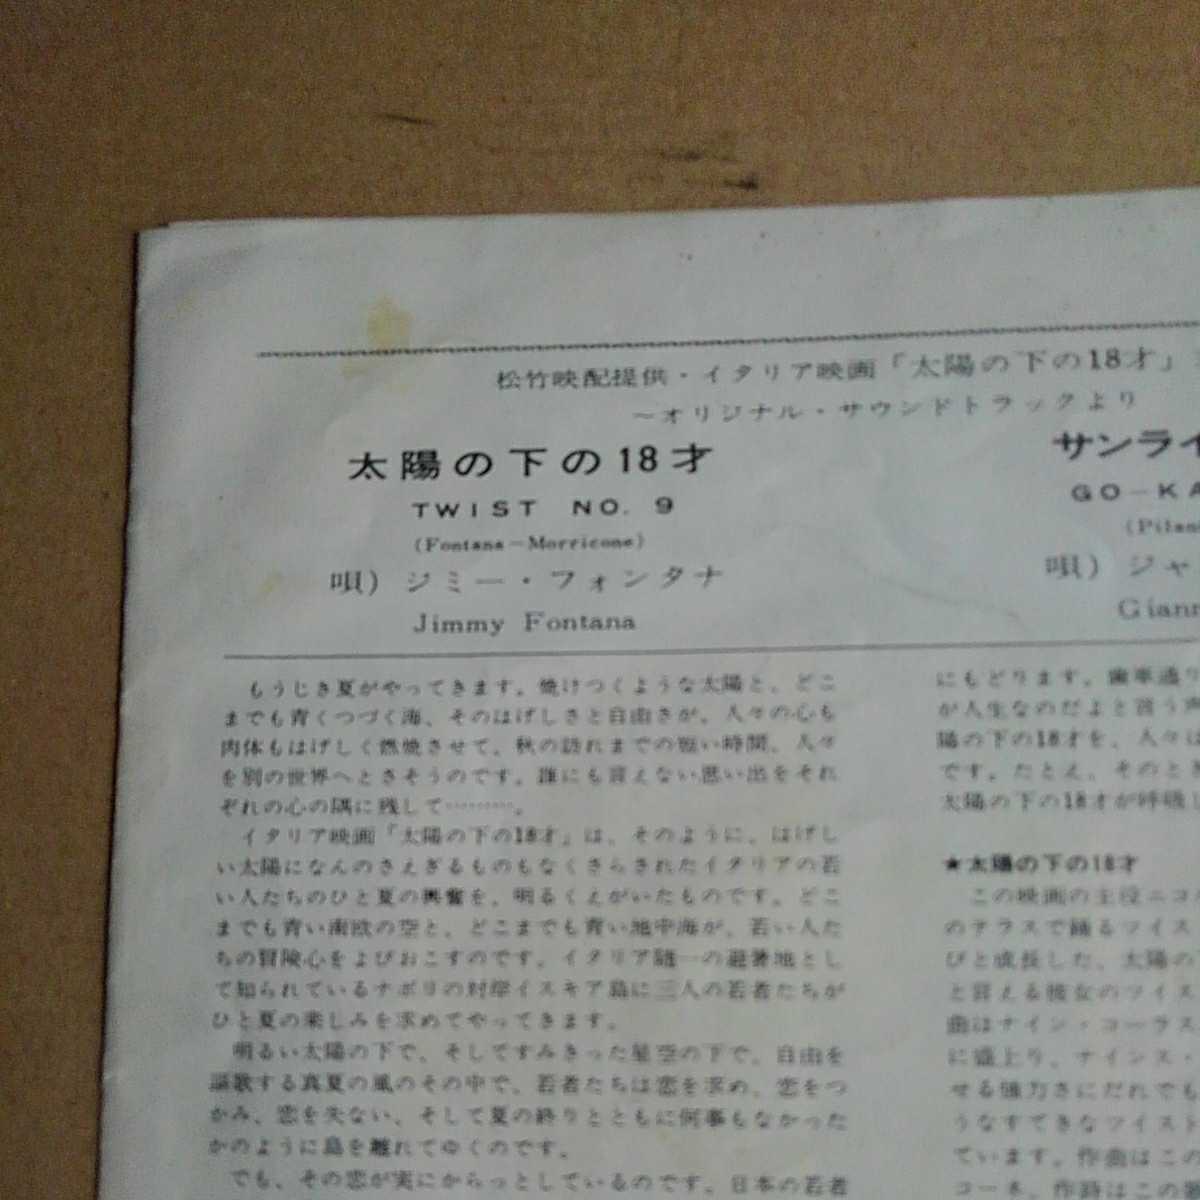 松竹映配提供・イタリア映画「太陽の下の18才」
～オリジナル・サウンドトラックより
太陽の下の18才
TWIST NO. 9
(Fontana－Morricone)
唄) ジミー・フォンタナ
Jimmy Fontana
サンライ
GO－KA
(Pilan
唄) ジャ
Giann
もうじき夏がやってきます。焼けつくような太陽と、どこ
までも青くつづく海、そのはげしさと自由さが、人々の心も
肉体もはげしく燃焼させて、秋の訪れまでの短い時間、人々
を別の世界へとさそうのです。誰にも言えない思い出をそれ
ぞれの心の隅に残して………。
イタリア映画「太陽の下の18才」は、そのように、はげし
い太陽になんのさえぎるものもなくさらされたイタリアの若
い人たちのひと夏の興奮を、明るくえがいたものです。どこ
までも青い南欧の空と、どこまでも青い地中海が、若い人た
ちの冒険心をよびおこすのです。イタリア随一の避暑地とし
て知られているナポリの対岸イスキア島に三人の若者たちが
ひと夏の楽しみを求めてやってきます。
明るい太陽の下で、そしてすみきった星空の下で、自由を
謳歌する真夏の風のその中で、若者たちは恋を求め、恋をつ
かみ、恋を失ない、そして夏の終りとともに何事もなかった
かのように島を離れてゆくのです。
でも、その恋が実にからっとしているのです。日本の若者
にもどります。歯車通り
が人生なのだよと言う声
陽の下の18才を、人々は
です。たとえ、そのとき
太陽の下の18才が呼吸し
★太陽の下の18才
この映画の主役ニコ
のテラスで踊るツイス
びと成長した、太陽の
と言える彼女のツイス
曲はナイン・コーラス
に盛上り、ナインス・
せる強力さにだれでも
うなすてきなツイスト
ています。作曲はこの
コーネ、作詩はこの